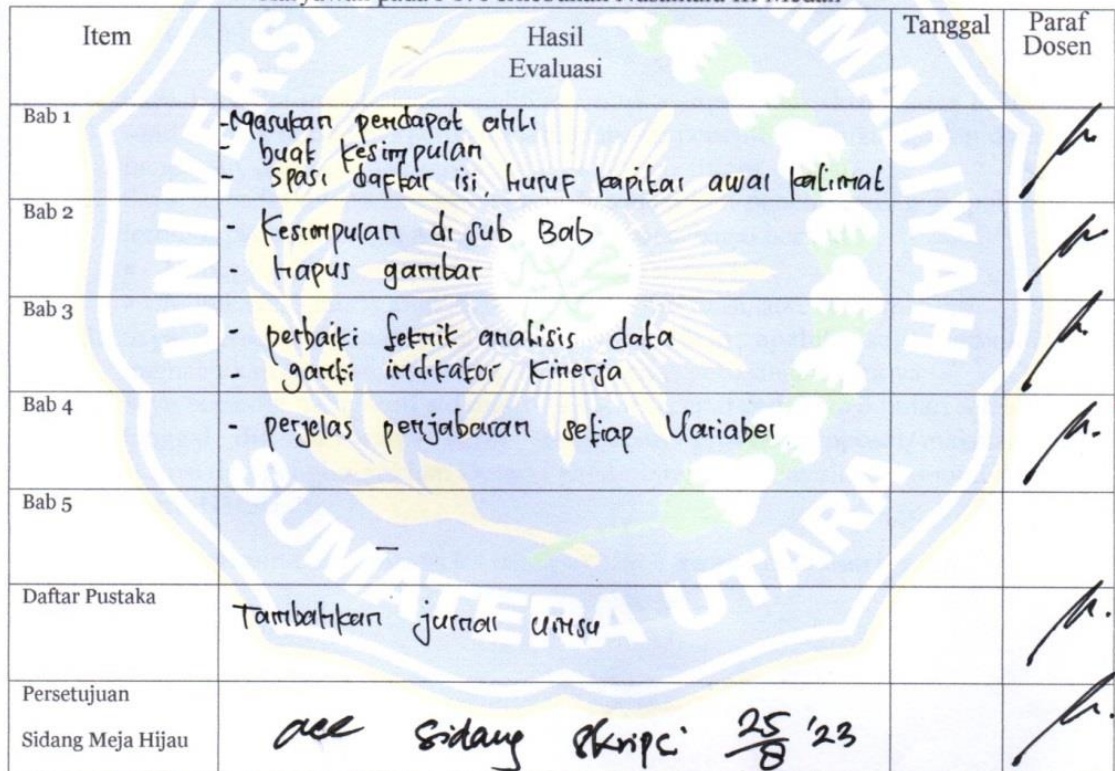 Karyawan pada PT. Perkebunan Nusantara III Medan
Item
Hasil
Evaluasi
Tanggal
Paraf
Dosen
Bab 1
- Masukan pendapat ahli
- buat kesimpulan
- spasi daftar isi, huruf kapital awal kalimat
Bab 2
- Kesimpulan di sub Bab
- Hapus gambar
Bab 3
- perbaiki teknik analisis data
- ganti indikator kinerja
Bab 4
- perjelas penjabaran setiap Variabel
Bab 5
-
Daftar Pustaka
Tambahkan jurnal umsu
Persetujuan
Sidang Meja Hijau
acc sidang skripsi 25/8 '23
UNIVERSITAS MUHAMMADIYAH
SUMATERA UTARA